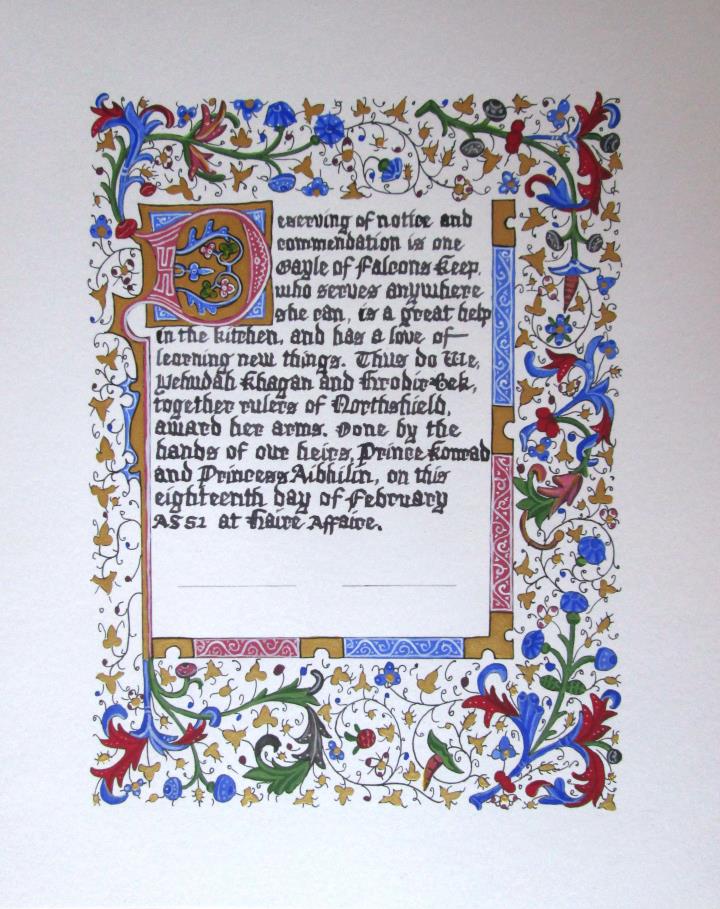 Deserving of notice and
commendation is one
Gayle of Falcons Keep,
who serves anywhere
she can, is a great help
in the kitchen, and has a love of
learning new things. Thus do We,
Yehudah Khagan and Hrodir Bek,
together rulers of Northshield,
award her arms. Done by the
hands of our heirs, Prince Konrad
and Princess Aibhilin, on this
eighteenth day of February
AS 51 at Haire Affaire.